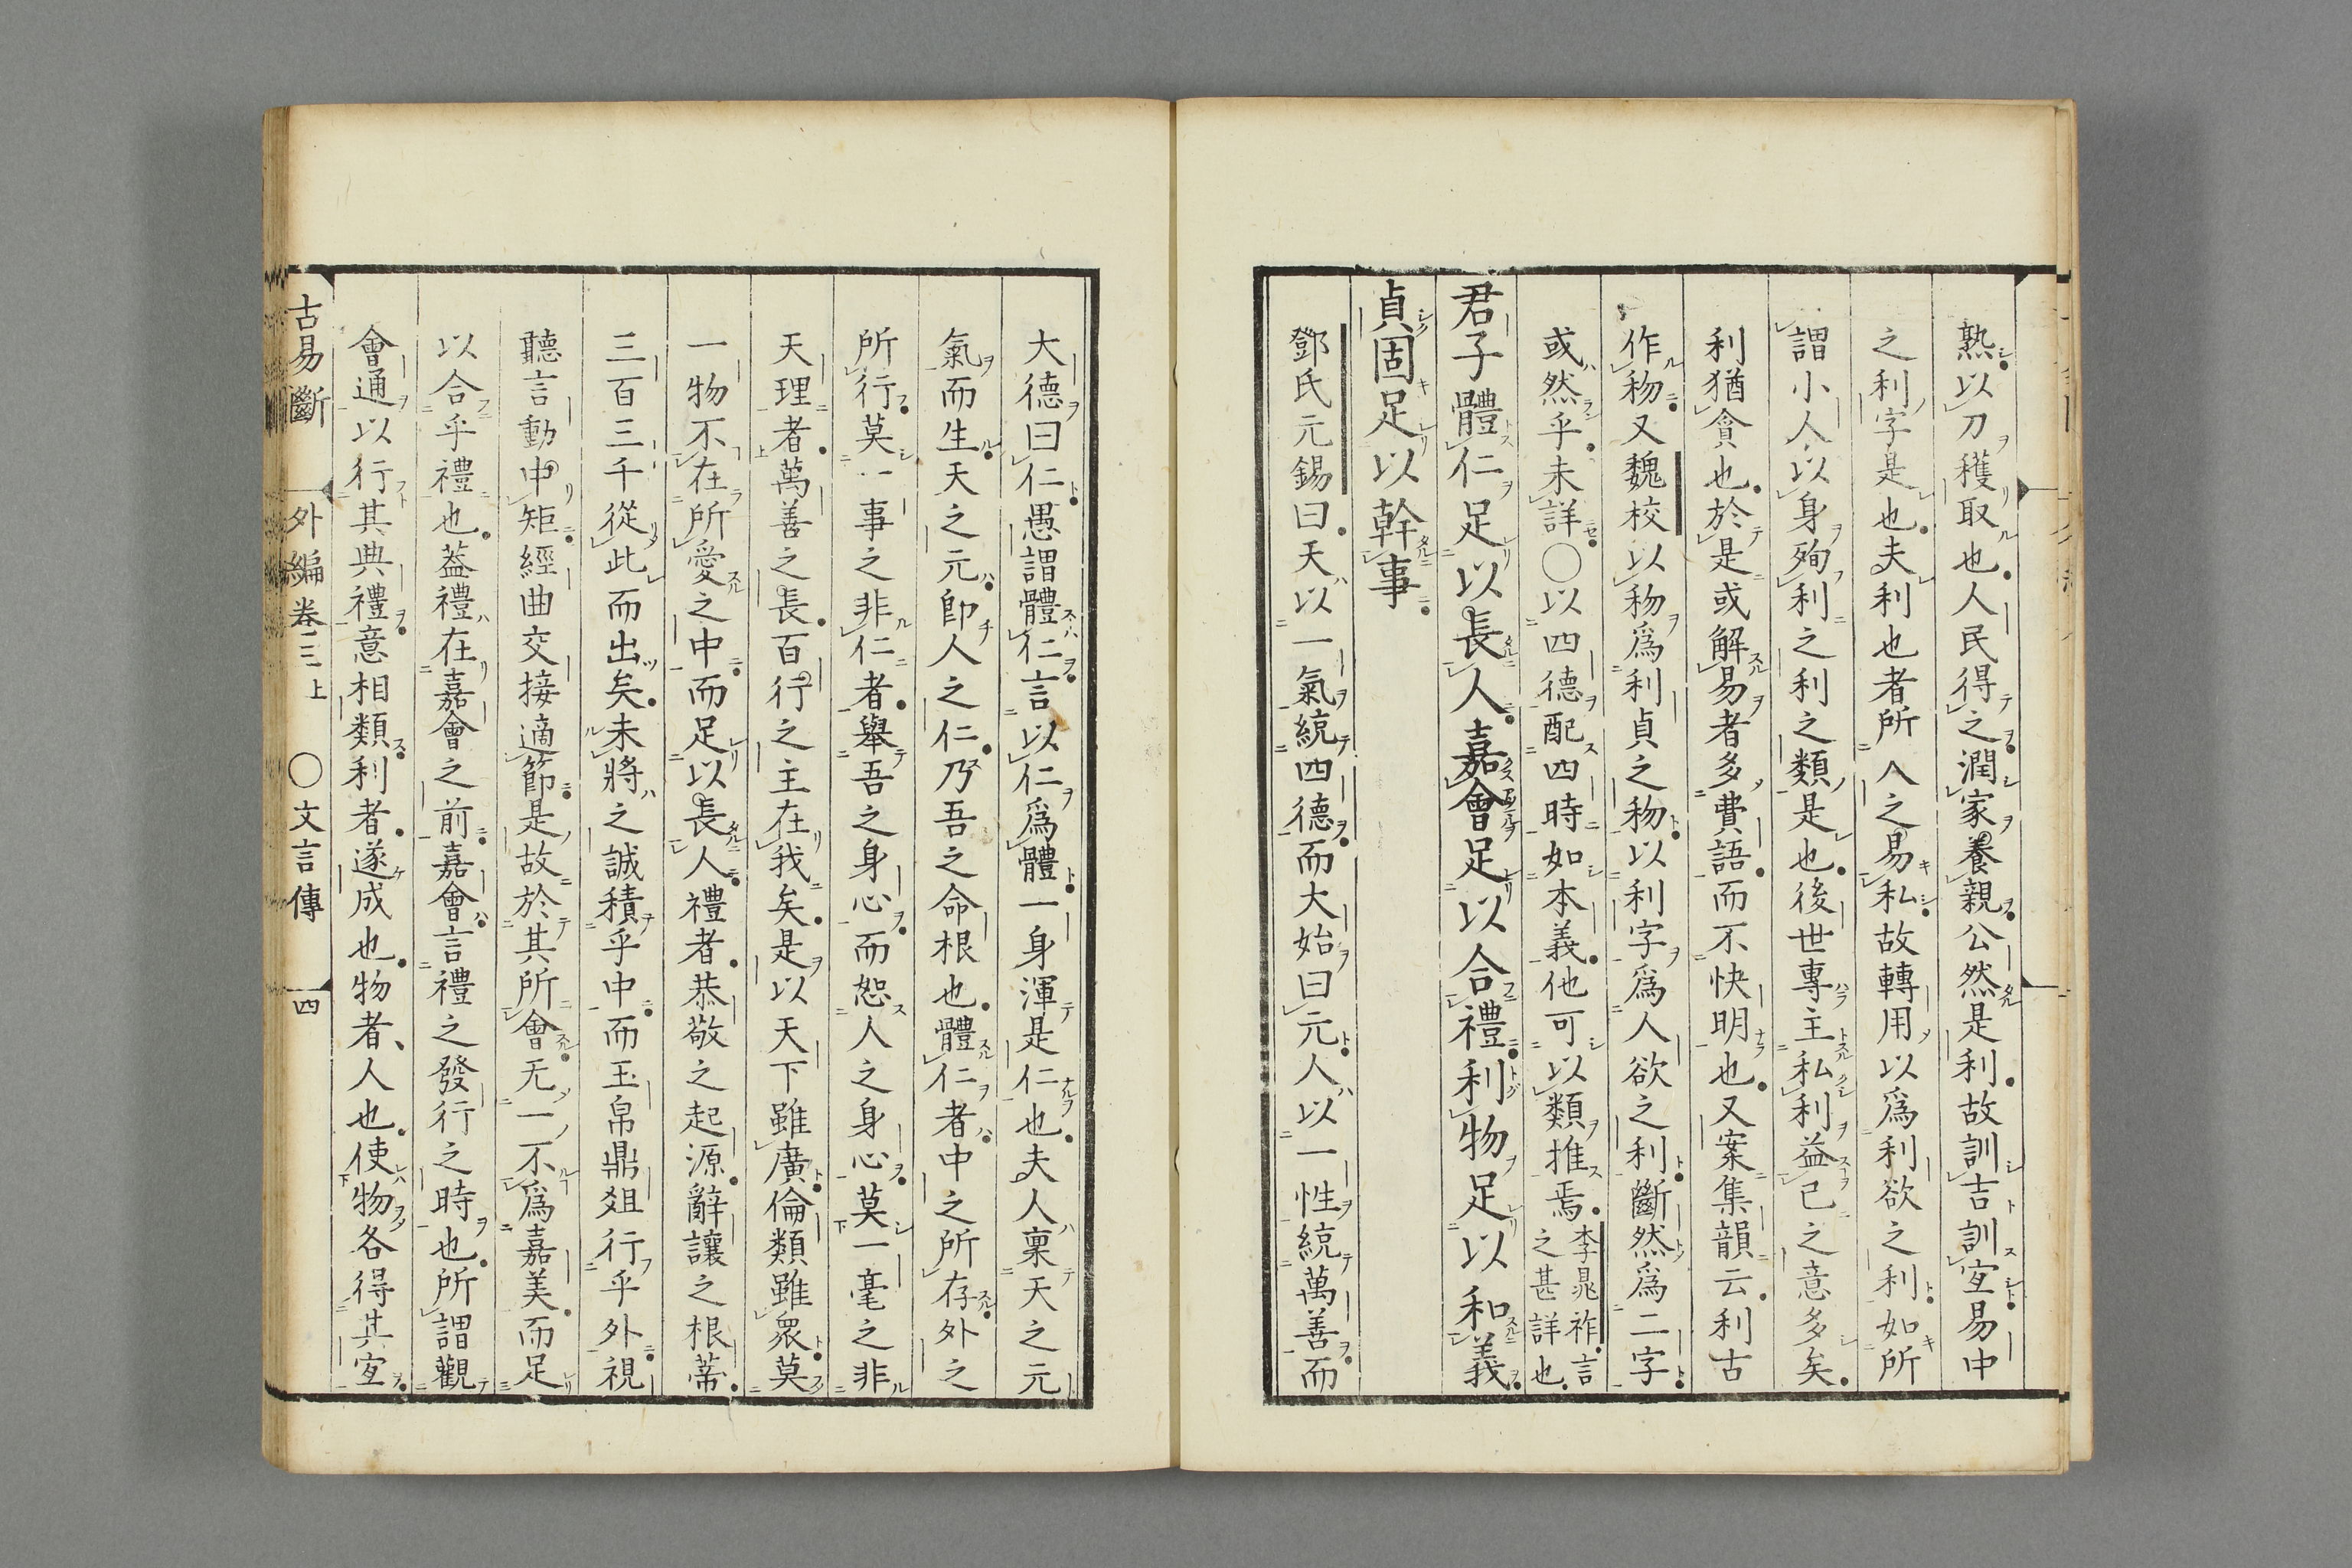 熟以刀穫取也人民得之潤家養親公然是利故訓吉訓宜易中
之利字是也夫利也者所人之易私故轉用以爲利欲之利如所
謂小人以身殉利之利之類是也後世專主私利益己之意多矣
利猶貪也於是或解易者多費語而不快明也又案集韻云利古
作㧅又魏校以㧅爲利貞之㧅以利字爲人欲之利斷然爲二字
或然乎未詳○以四德配四時如本義他可以類推焉李鼎祚言之甚詳也
君子體仁足以長人嘉會足以合禮利物足以和義
貞固足以幹事
鄧氏元錫曰天以一氣統四德而大始曰元人以一性統萬善而
大德曰仁愚謂體仁言以仁爲體一身渾是仁也夫人稟天之元
氣而生天之元卽人之仁乃吾之命根也體仁者中之所存外之
所行莫一事之非仁者舉吾之身心而恕人之身心莫一毫之非
天理者萬善之長百行之主在我矣是以天下雖廣倫類雖衆莫
一物不在所愛之中而足以長人禮者恭敬之起源辭讓之根蒂
三百三千從此而出矣未將之誠積乎中而玉帛鼎俎行乎外視
聽言動中矩經曲交接適節是故於其所會无一不爲嘉美而足
以合乎禮也蓋禮在嘉會之前嘉會言禮之發行之時也所謂觀
會通以行其典禮意相類利者遂成也物者人也使物各得其宜
古易斷 外編卷三上 ○文言傳 四